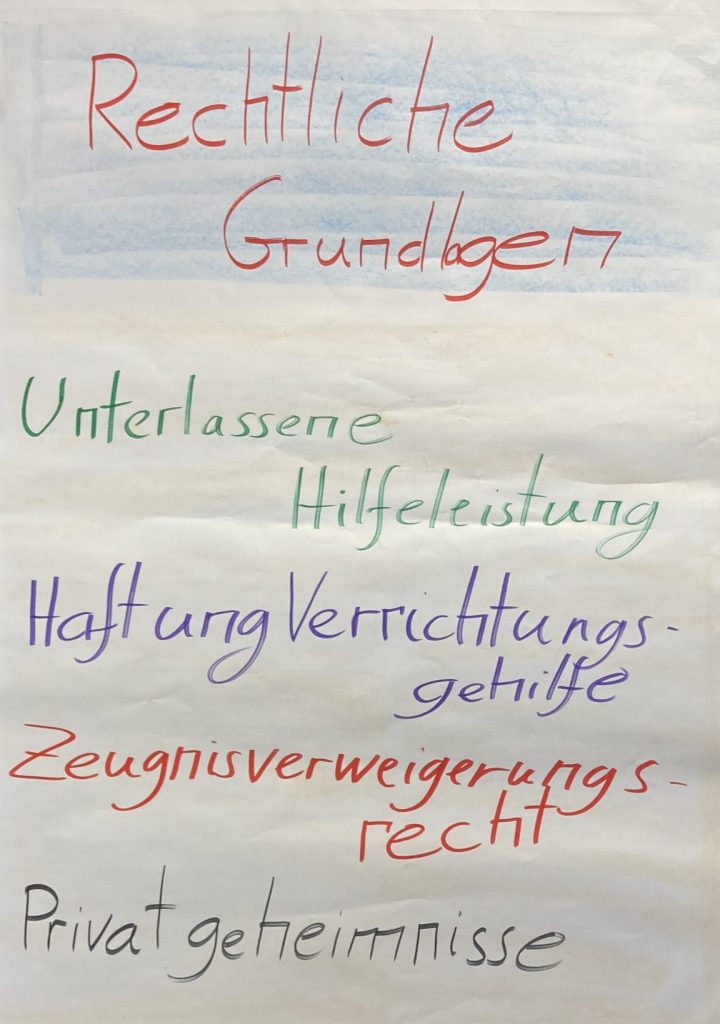 Rechtliche
Grundlagen
Unterlassene
Hilfeleistung
Haftung Verrichtungs-
gehilfe
Zeugnisverweigerungs-
recht
Privatgeheimnisse